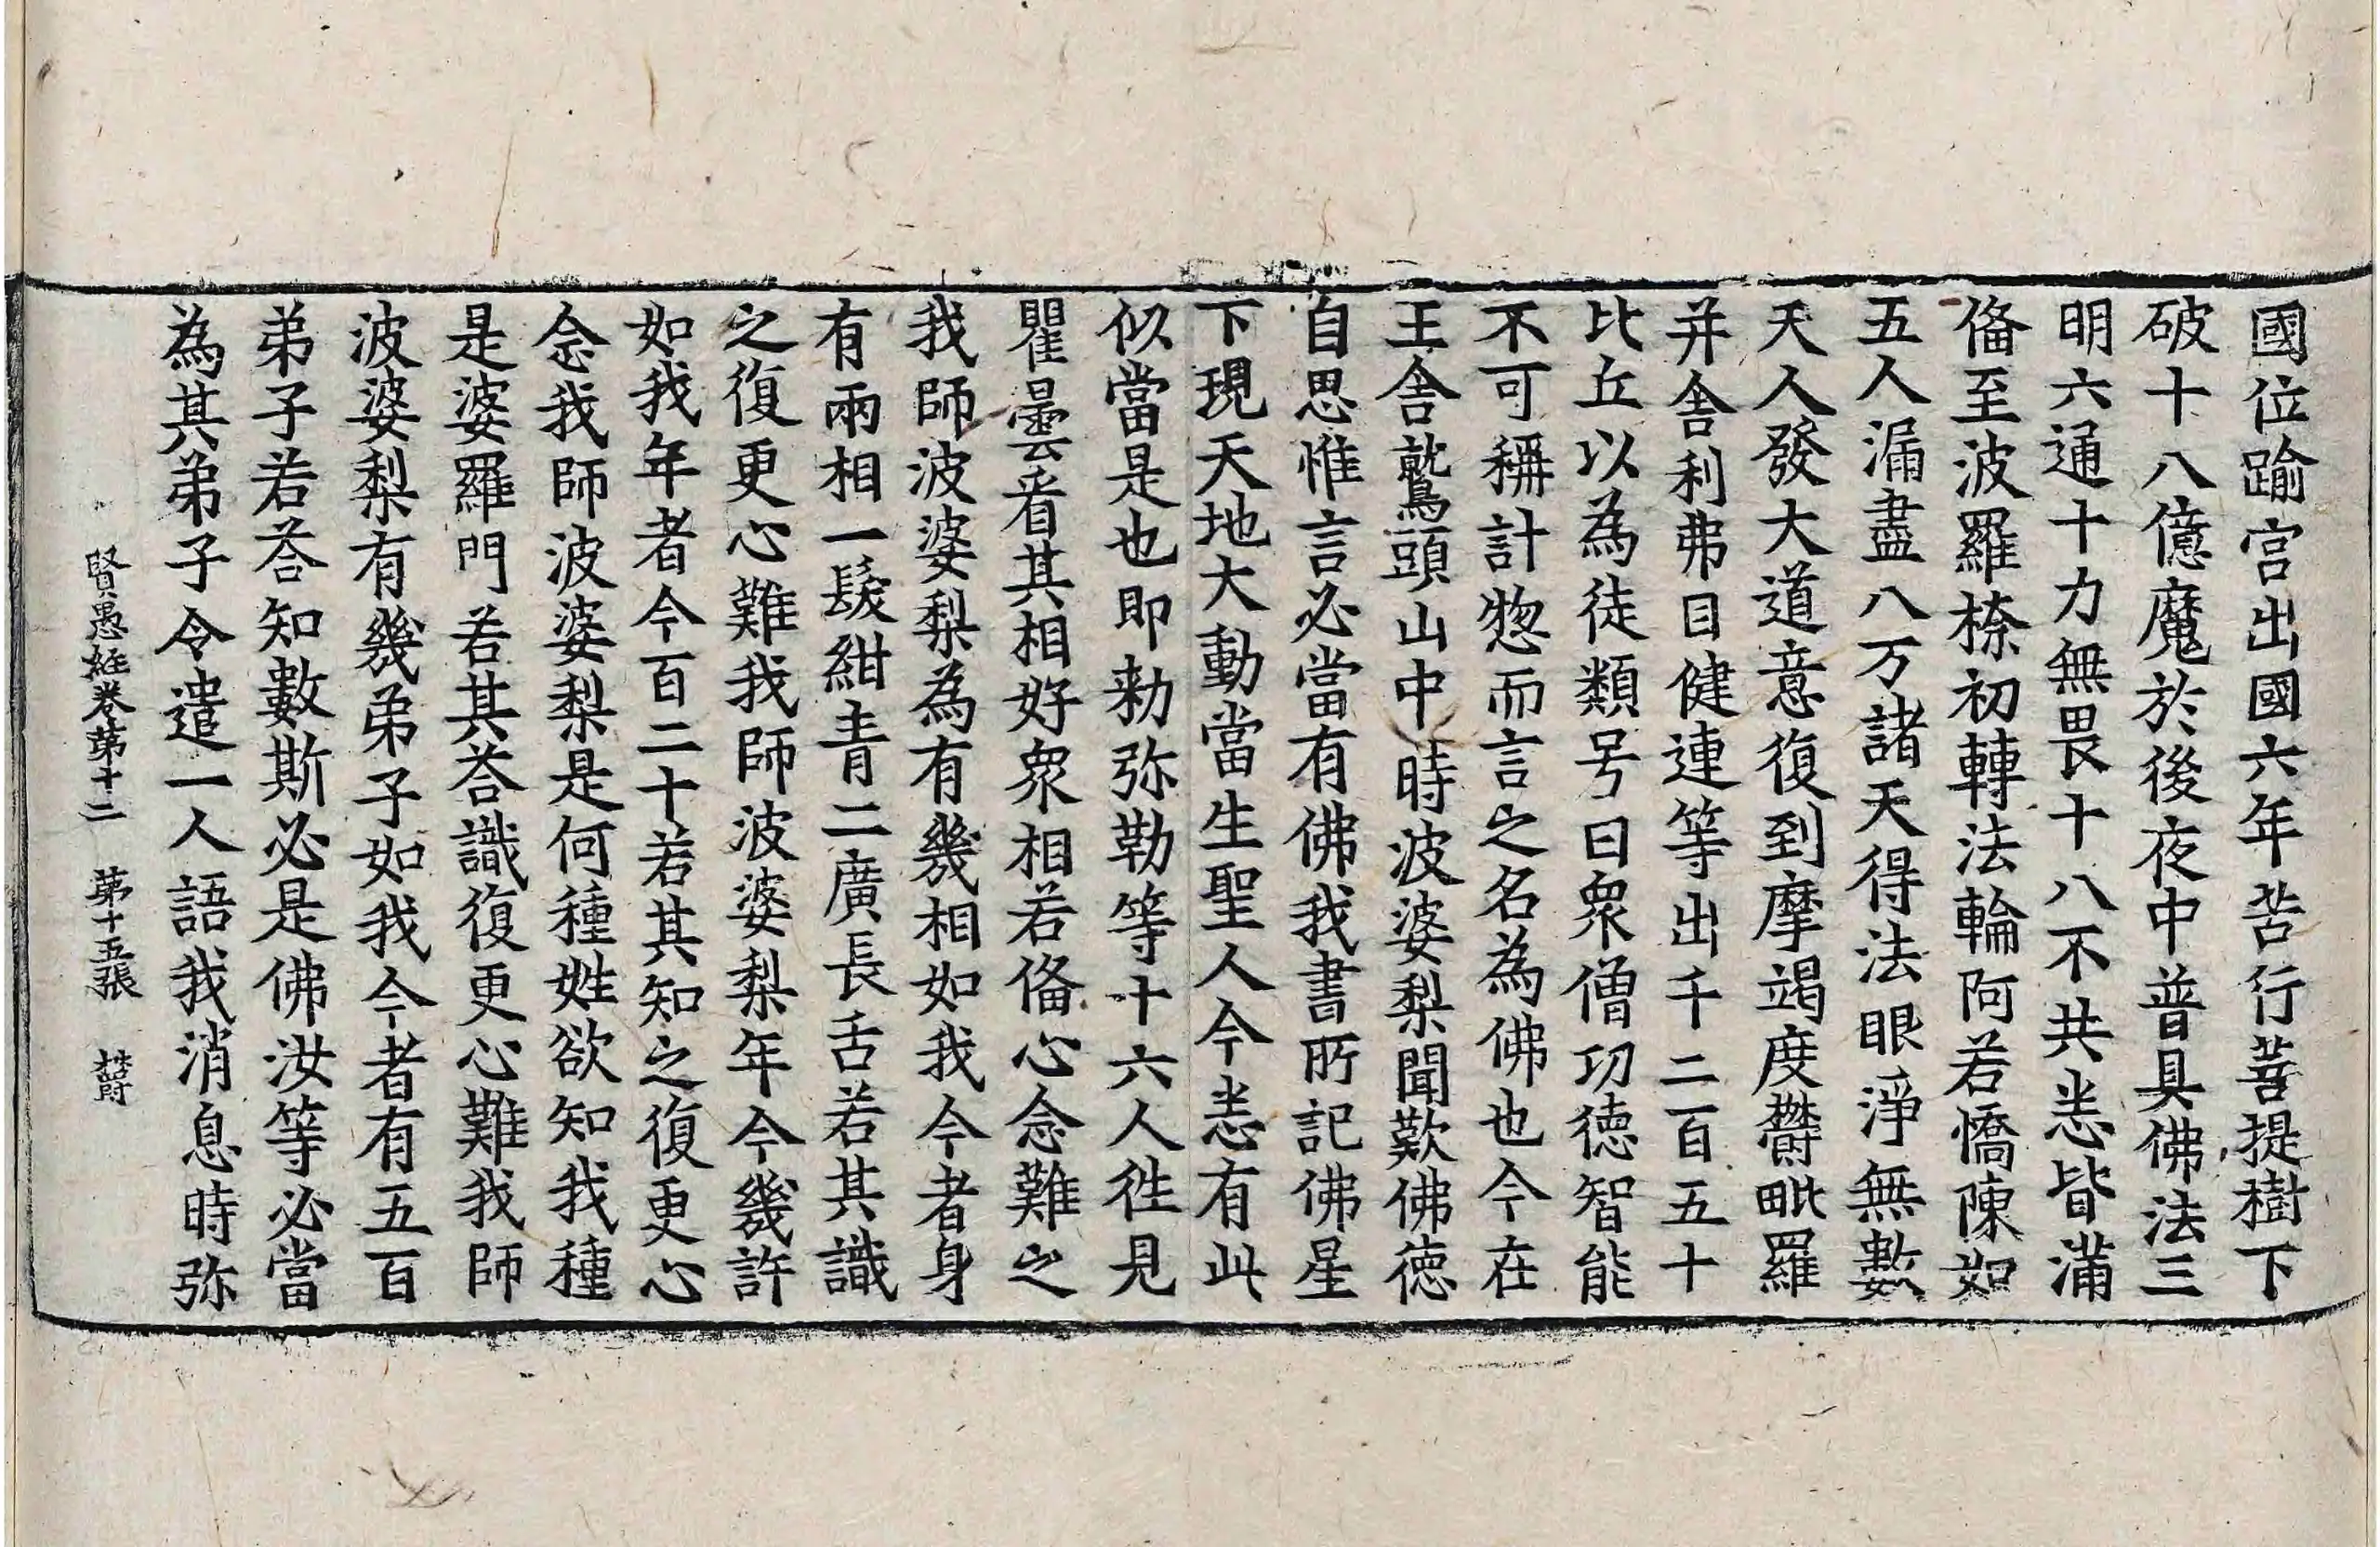 國位踰宫出國六年苦行菩提樹下
破十八億魔於後夜中普具佛法三
明六通十力無畏十八不共悉皆滿
俻至波羅㮈初轉法輪阿若憍陳如
五人漏盡八万諸天得法眼淨無數
天人發大道意復到摩竭度欝毗羅
并舎利弗目健連等出千二百五十
比丘以為徒類号曰衆僧功德智能
不可稱計惣而言之名為佛也今在
王舎鷲頭山中時波婆梨聞歎佛德
自思惟言必當有佛我書所記佛星
下現天地大動當生聖人今悉有此
似當是也即勑弥勒等十六人徃見
瞿曇看其相好衆相若俻心念難之
我師波婆梨為有幾相如我今者身
有兩相一髮紺青二廣長舌若其識
之復更心難我師波婆梨年今幾許
如我年者今百二十若其知之復更心
念我師波婆梨是何種姓欲知我種
是婆羅門若其荅識復更心難我師
波婆梨有幾弟子如我今者有五百
弟子若荅知數斯必是佛汝等必當
為其弟子令遣一人語我消息時弥
賢愚經卷第十二 第十五張 欝